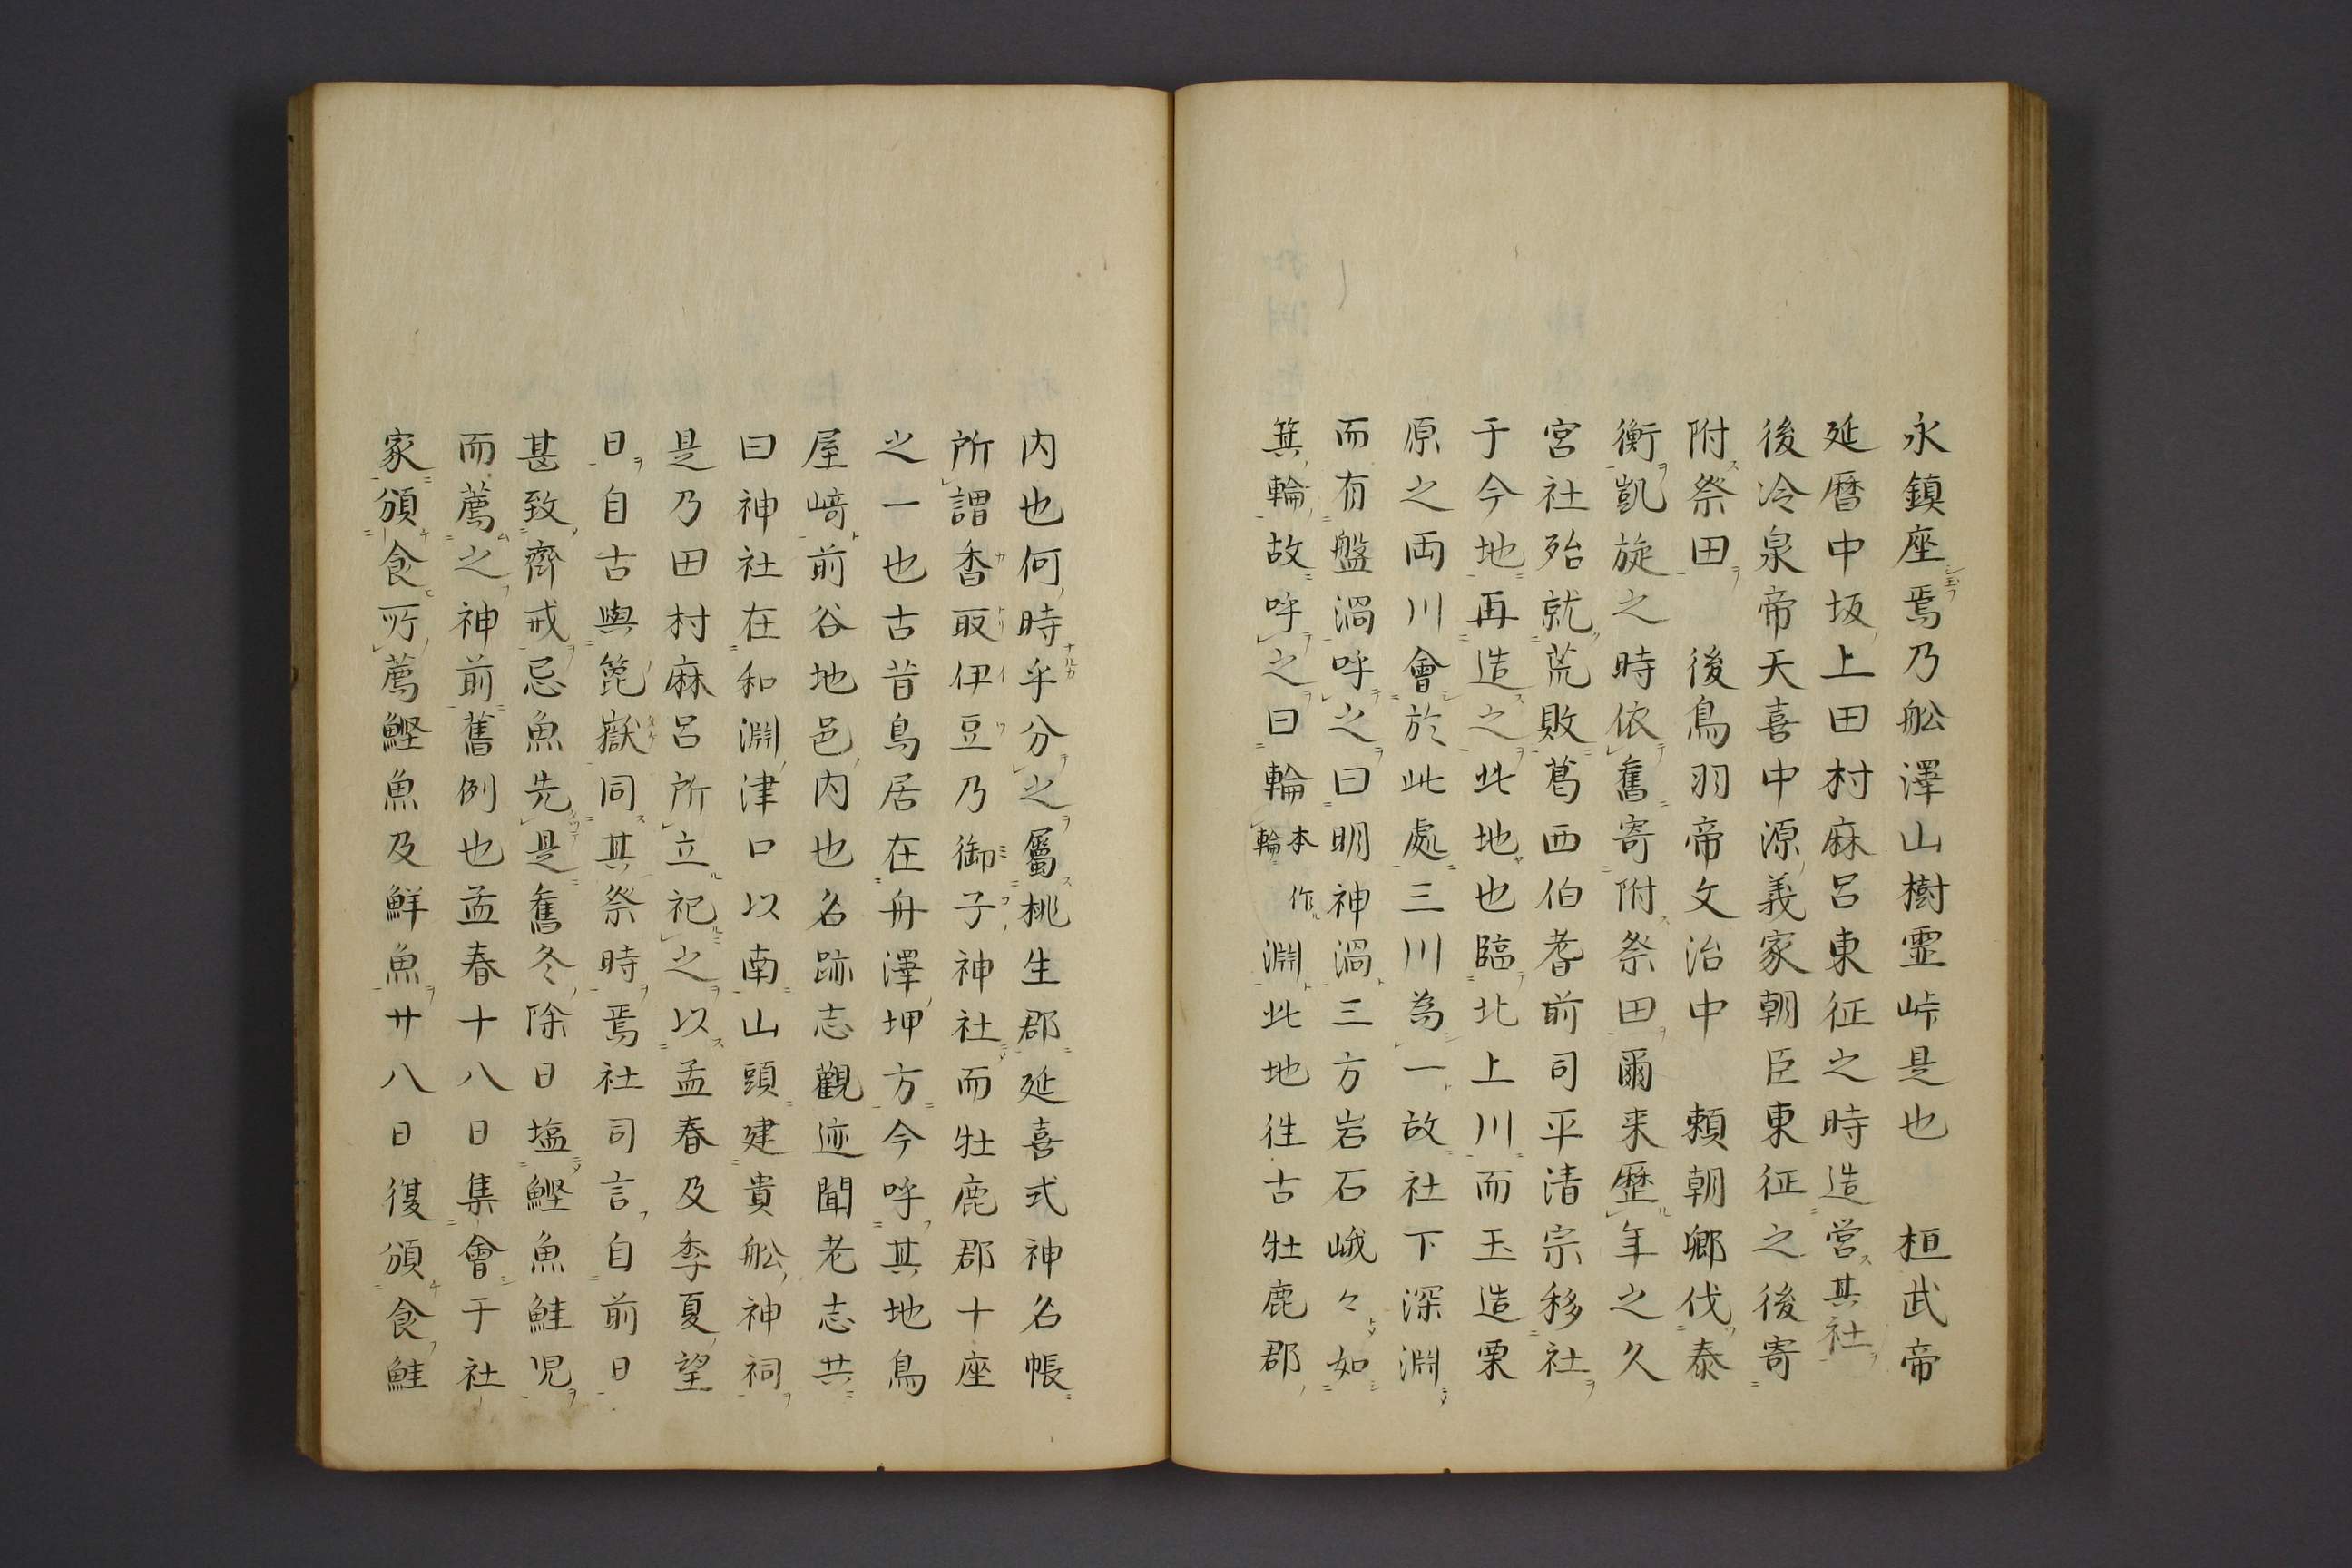 永鎮座焉乃舩澤山樹霊峠是也　桓武帝
延暦中坂上田村麻呂東征之時造営其社
後冷泉帝天喜中源義家朝臣東征之後寄
附祭田　後鳥羽帝文治中　頼朝郷伐泰
衡凱旋之時依舊寄附祭田爾来歴年之久
宮社殆就荒敗葛西伯耆前司平清宗移社
于今地再造之此地也臨北上川而玉造栗
原之両川會於此處三川為一故社下深淵
而有盤渦呼之曰明神渦三方岩石峨々如
箕輪故呼之曰輪本作輪淵此地徃古牡鹿郡
内也何時乎分之屬桃生郡延喜式神名帳
所謂香取伊豆乃御子神社而牡鹿郡十座
之一也古昔鳥居在舟澤坤方今呼其地鳥
屋﨑前谷地邑内也名跡志觀迹聞老志共
曰神社在和淵津口以南山頭建貴舩神祠
是乃田村麻呂所立祀之以孟春及季夏望
日自古與箆嶽同其祭時焉社司言自前日
甚致齊戒忌魚先是舊冬除日塩鰹魚鮭児
而薦之神前舊例也孟春十八日集會于社
家頒食所薦鰹魚及鮮魚廿八日復頒食鮭